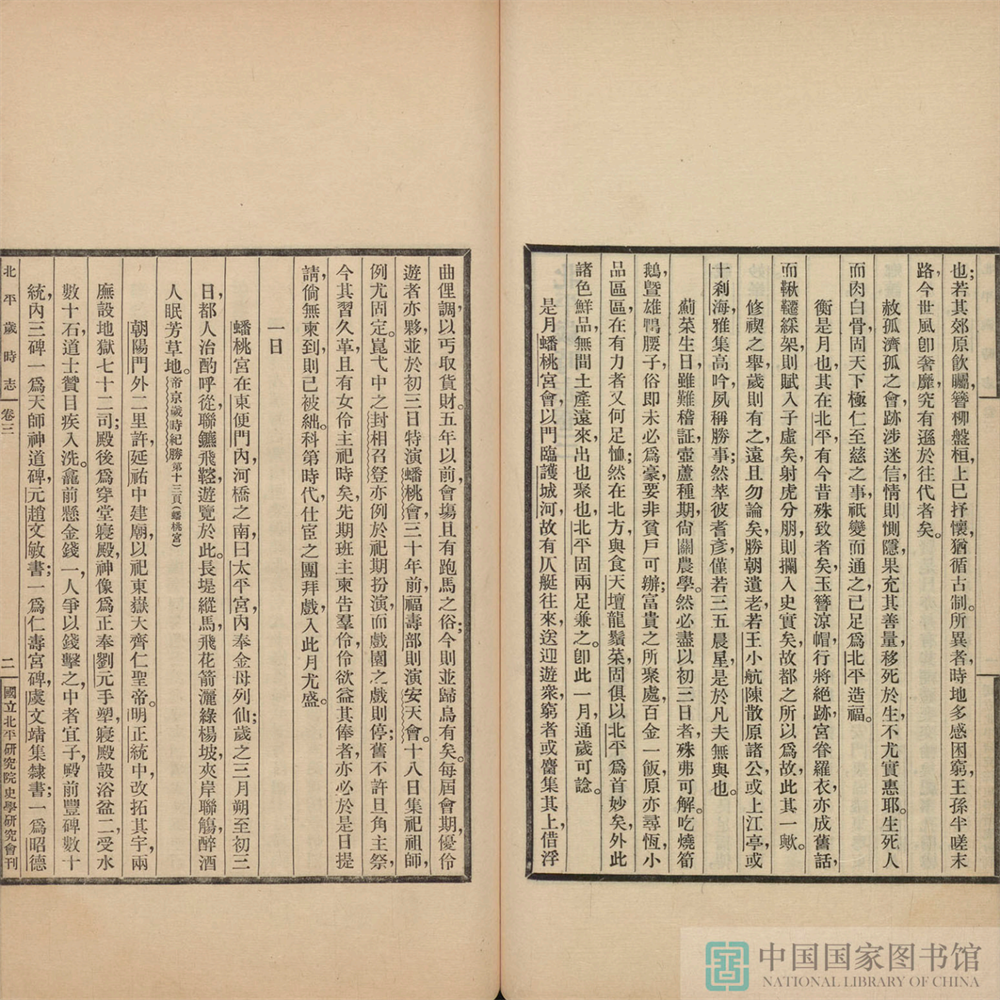 也;若其郊原飲囑,簪柳盤桓,上巳抒懷,猶循古制。所異者,時地多感困窮,王孫半嗟末
路,今世風卽奢靡,究有遜於往代者矣。
赦孤濟孤之會,跡涉迷信,情則惻隱,果充其善量,移死於生,不尤實惠耶。生死人
而肉白骨,固天下極仁至慈之事,祇變而通之,已足爲北平造福。
衡是月也,其在北平,有今昔殊致者矣。玉簪涼帽,行將絕跡,宮眷羅衣,亦成舊話,
而鞦韆綵架,則賦入子虛矣,射虎分朋,則攔入史實矣,故都之所以爲故,此其一歟。
修禊之舉,歲則有之,遠且勿論矣,勝朝遺老,若王小航陳散原諸公,或上江亭,或
十剎海,雅集高吟,夙稱勝事;然萃彼耆彥,僅若三五晨星,是於凡夫無與也。
薊菜生日,雖難稽証,壺蘆種期,尙關農學。然必盡以初三日者,殊弗可解。吃燒筍
鵝,曁雄鴨腰子,俗卽未必爲豪要,非貧戶可辦;富貴之所聚處,百金一飯,原亦尋恆,小
品區區,在有力者又何足恤;然在北方,與食天壇龍鬚菜,固俱以北平爲首妙矣,外此
諸色鮮品,無間土產遠來,出也聚也,北平固兩足兼之。卽此一月,通歲可諗。
是月蟠桃宮會,以門臨護城河,故有仄艇往來送迎遊衆,窮者或醵集其上,借浮
曲俚調,以丐取貨財。五年以前,會塲且有跑馬之俗;今則並歸烏有矣。每屆會期,優伶
遊者亦夥,並於初三日特演蟠桃會;三十年前,福壽部則演安天會。十八日集祀祖師,
例尤固定。崑弋中之封相召登,亦例於祀期扮演,而戲園之戲則停;舊不許旦角主祭,
今其習久革,且有女伶主祀時矣,先期班主柬告羣伶,伶欲益其俸者,亦必於是日提
請,倘無柬到,則已被絀。科第時代,仕臣之團拜戲,入此月尤盛。
一日
蟠桃宮在東便門內,河橋之南,曰太平宮,內奉金母列仙;歲之三月朔至初三
日,都人治酌呼從,聯鑣飛鞚,遊覽於此。長堤縱馬,飛花箭灑綠楊坡,夾岸聯觴,醉酒
人眠芳草地。帝京歲時紀勝第十三頁(蟠桃宮)
朝陽門外二里許,延祐中建廟,以祀東嶽天齊仁聖帝。明正統中改拓其宇,兩
廡設地獄七十二司;殿後爲穿堂寢殿,神像爲正奉劉元手塑,寢殿設浴盆二,受水
數十石,道士贊目疾入洗。龕前懸金錢,一人爭以錢擊之,中者宜子,殿前豐碑數十
統,內三碑,一爲天師神道碑,元趙文敏書;一爲仁壽宮碑,虞文靖集隸書;一爲昭德
北平歲時志 卷三 二 國立北平硏究院史學硏究會刊
中国国家图书馆
NATIONAL LIBRARY OF CHINA